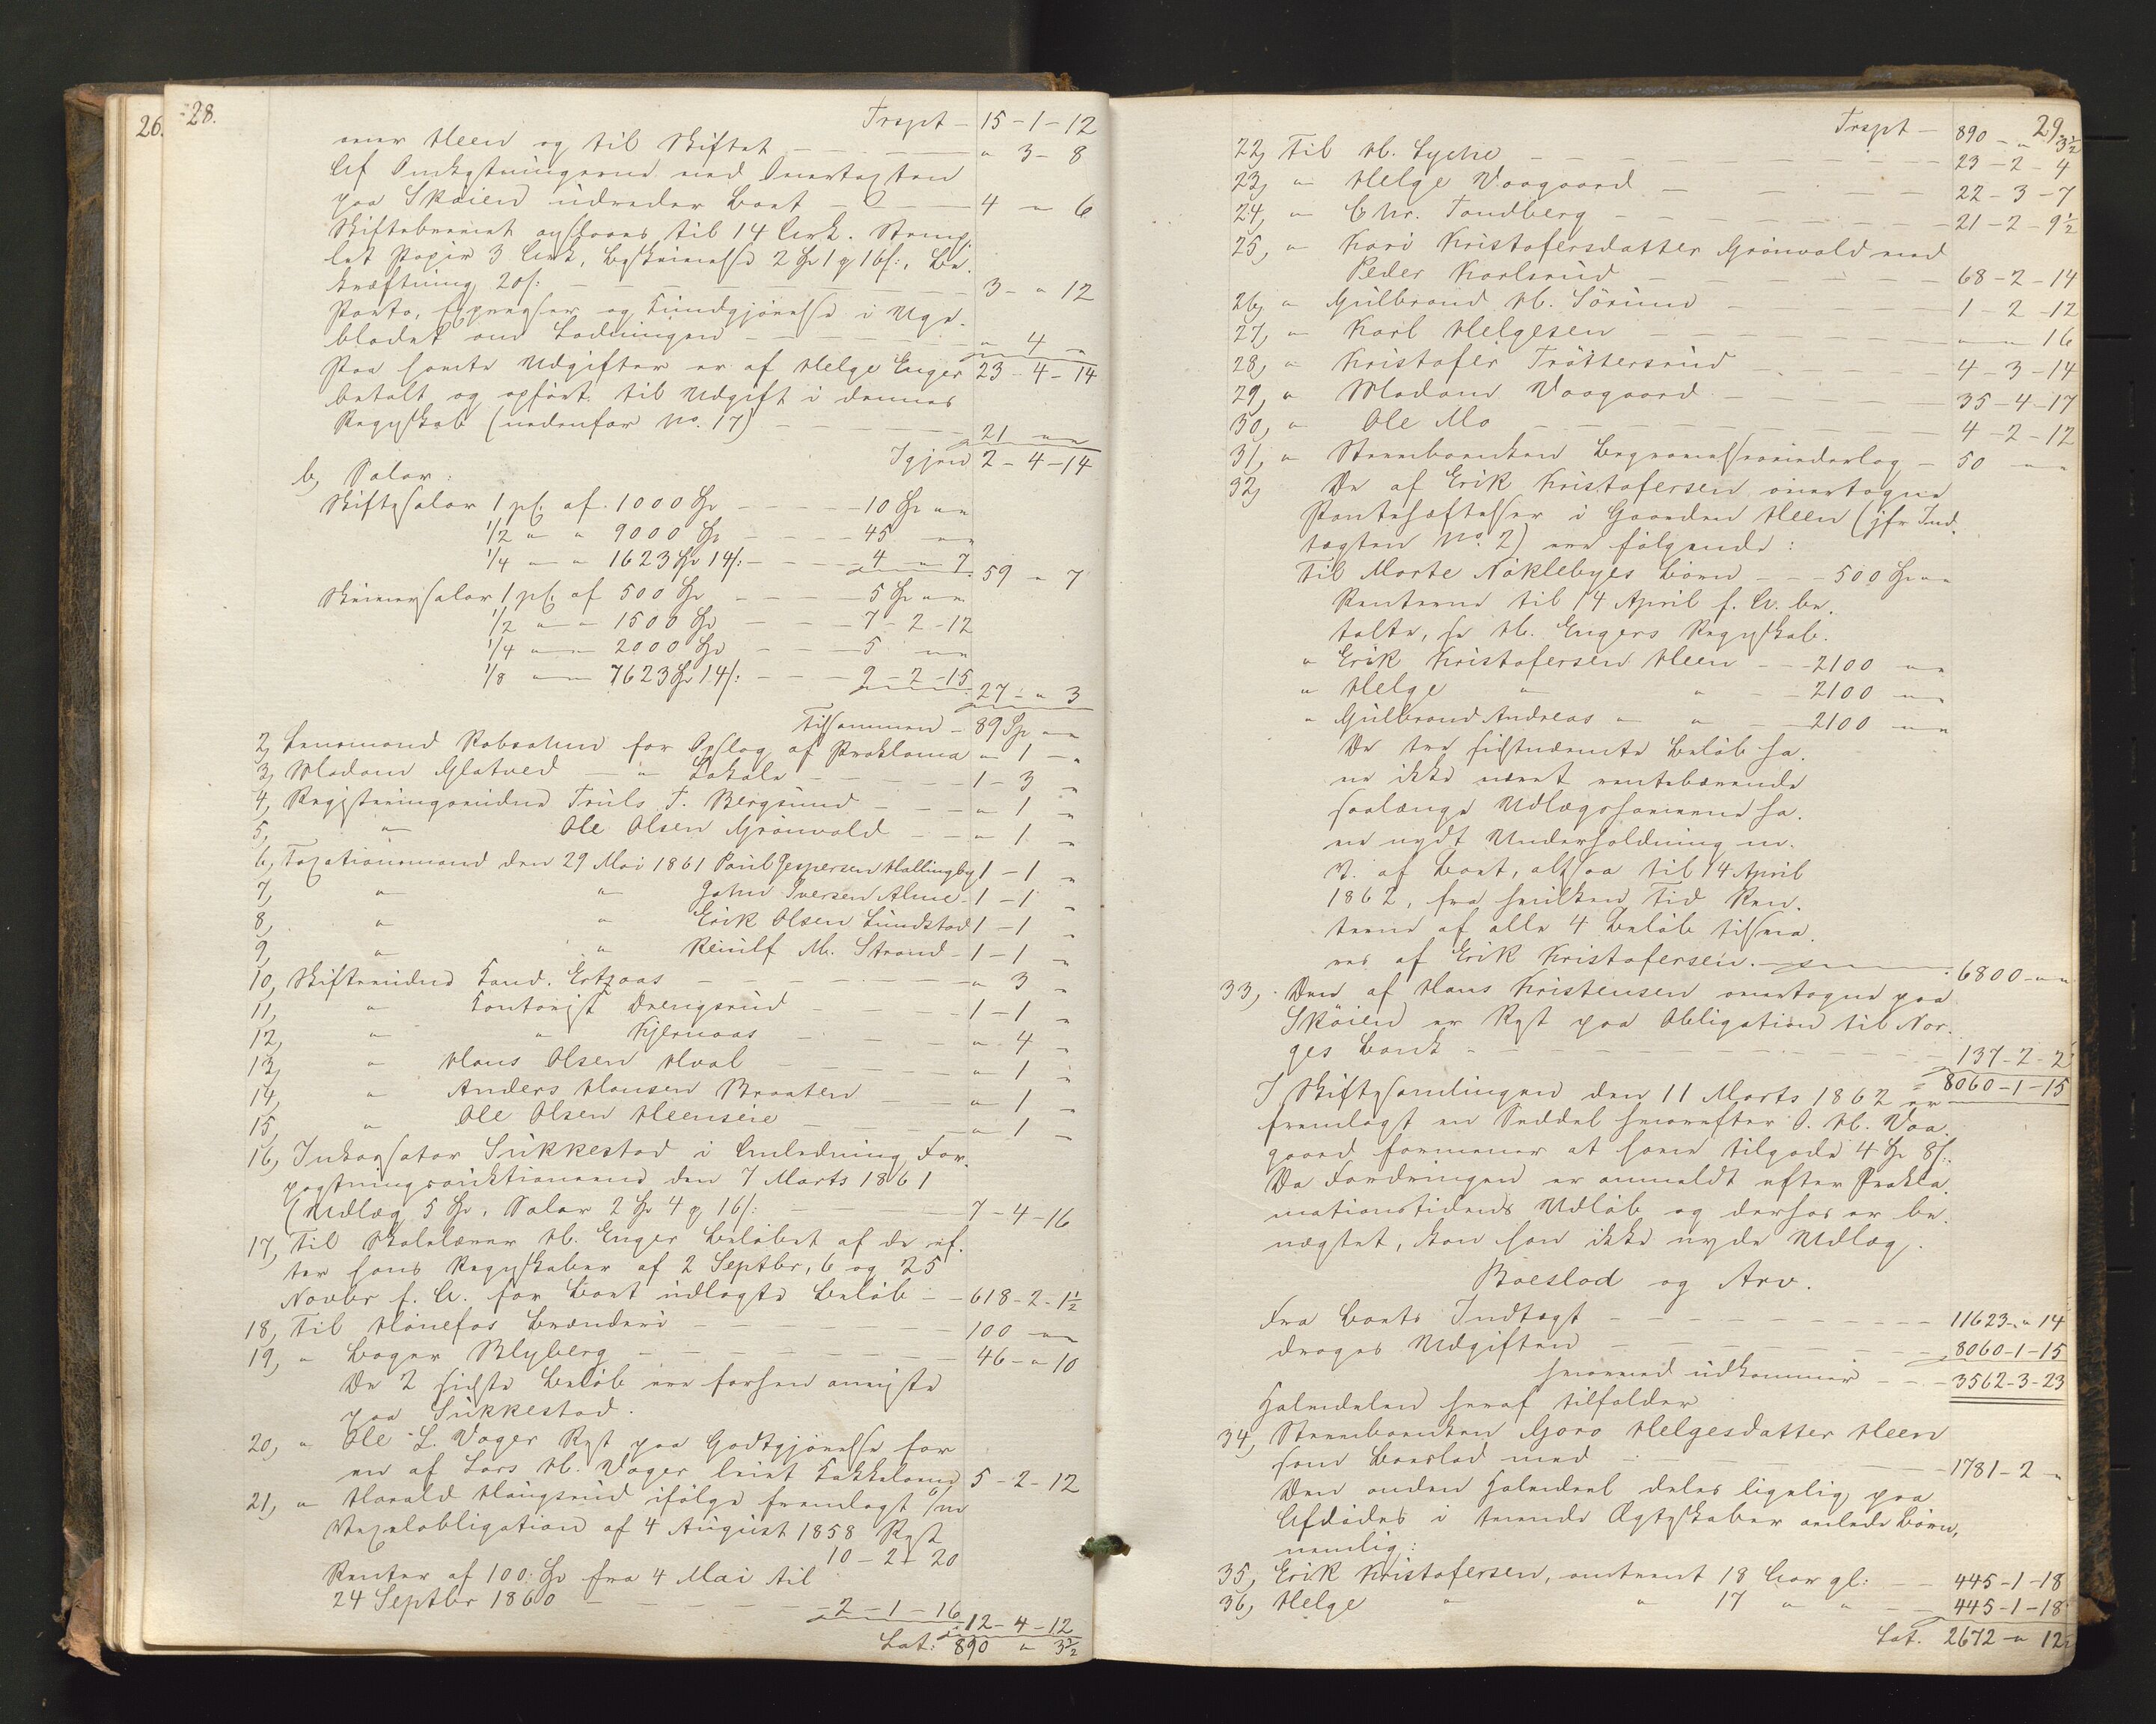 26.
28.
Trspt - 15 - 1 - 12
over Heen og til Skiftet - - - " 3 - 8
Af Omkostningerne ved Overtagten
paa Skøien udreder Boet - - - 4 - " 6
Skiftebrevet opslaaes til 14 Ark. Stemp-
let Papir 3 Ark, Beskrivelse 2 Spd 1 ₰ 16 s:, Be-
kræftning 20 s: - - - 3 - " 12
Porto, Expresser og Kundgjørelse i Uge-
bladet om Lodningen - - - " 4 "
Paa forente Udgifter er af Helge Enger 23 - 4 - 14
betalt og opført til Udgift i dennes
Regnskab (nedenfor No. 17) - - - 21 " "
Igjen 2 - 4 - 14
b, Salar:
Skiftesalar 1 pCt. af 1000 Spd - - - 10 Spd " "
1/2 " " 9000 Spd - - - 45 " "
1/4 " " 1623 Spd 14 s: - - - 4 " 7 59 " 7
Skriversalar 1 pCt. af 500 Spd - - - 5 Spd " "
1/2 " " 1500 Spd - - - 7 - 2 - 12
1/4 " " 2000 Spd - - - 5 " "
1/8 " " 7623 Spd 14 s: - - - 9 - 2 - 15 27 - " 3
Tilsammen - 89 Spd " "
2, Lensmand Robsahm for Opslag af Proklama " 1 - "
3, Madam Glatved - " Lokale - - - 1 - 3 "
4, Registreringsvidne Truls T. Bergsund - - - " 1 "
5, " Ole Olsen Grönvold - - " 1 "
6, Taxationsmand den 29 Mai 1861 Paul Jespersen Hallingby 1 - 1 "
7, " " John Iversen Alme - 1 - 1 "
8, " " Erik Olsen Lundstad 1 - 1 "
9, " " Reiulf M. Strand - 1 - 1 "
10, Skiftevidne Cand. Ertzaas - - - " 3 "
11, " Kontorist Drengsrud - - - 1 - 1 "
12, " " Kjernaas - - - " 4 "
13, " Hans Olsen Hval - - - " 1 "
14, " Anders Hansen Braaten - - - " 1 "
15, " Ole Olsen Heenseie - - - " 1 "
16, Inkassator Sukkestad i Anledning For-
pagtningsauktionerne den 7 Marts 1861
(Udlæg 5 Spd, Salar 2 Spd 4 ₰ 16 s: - - - 7 - 4 - 16
17, Til Skolelærer H. Enger Beløbet af de ef-
ter hans Regnskaber af 2 Septbr, 6 og 25
Novbr f. A. for Boet udlagte Beløb - - 618 - 2 - 1½
18, Til Hønefos Brænderi - - - 100 " "
19, " Bager Blyberg - - - 46 - " 10
De 2 sidste Beløb ere forhen anviste
paa Sukkestad.
20, " Ole L. Vager Rest paa Godtgjørelse for
en af Lars H. Vager leiet Kakkelovn 5 - 2 - 12
21, " Harald Haugsrud ifølge fremlagt
Vexelobligation af 4 August 1858 Rest
10 - 2 - 20
Renter af 100 Spd fra 4 Mai til
24 Septbr 1860 - - - 2 - 1 - 16 12 - 4 - 12
Lat: 890 " 3½
29.
Trspt - 890 - " 3½
22, Til H. Lyche - - - 23 - 2 - 4
23, " Helge Vaagaard - - - 22 - 3 - 7
24, " Chr. Tandberg - - - 21 - 2 - 9½
25, " Kari Kristofersdatter Grönvold ved
Peder Karlsrud - - - 68 - 2 - 14
26, " Gulbrand H. Sörum - - - 1 - 2 - 12
27, " Karl Helgesen - - - " " 16
28, " Kristofer Tröttersrud - - - 4 - 3 - 14
29, " Madam Vaagaard - - - 35 - 4 - 17
30, " Ole Mo - - - 4 - 2 - 12
31, " Stervboenken Begravelsesvederlag - 50 " "
32, De af Erik Kristofersen overtagne
Pantehæftelser i Gaarden Heen (jfr Ind-
tægten No. 2) ere følgende:
Til Marte Nöklebyes Børn - - - 500 Spd " "
Renterne til 14 April f. A. be-
talte, se H. Engers Regnskab.
" Erik Kristofersen Heen - - 2100 " "
" Helge " " - - 2100 " "
" Gulbrand Andreas " " - - 2100 " "
De tre sidstnævnte Beløb ha-
ve ikke været rentebærende
saalænge Udlægshaverne ha-
ve nydt Underholdning m.
V. af Boet, altsaa til 14 April
1862, fra hvilken Tid Ren-
terne af alle 4 Beløb tilsva-
res af Erik Kristofersen. - - - 6800 - " "
33, Den af Hans Kristensen overtagne paa
Skøien er Rest paa Obligation til Nor-
ges Bank - - - 137 - 2 - 2
8060 - 1 - 15
I Skiftesamlingen den 11 Marts 1862 er
fremlagt en Seddel hvorefter O. H. Vaa-
gaard formener at have tilgode 4 Spd 8 s:.
Da Fordringen er anmeldt efter Prokla-
mationstidens Udløb og derhos er be-
nægtet, kan han ikke nyde Udlæg.
Boeslod og Arv.
Fra Boets Indtægt - - - 11623 - " 14
drages Udgiften - - - 8060 - 1 - 15
hvorved udkommer - - - 3562 - 3 - 23
Halvdelen heraf tilfalder
34, Stervboenken Goro Helgesdatter Heen
som Boeslod med - - - 1781 - 2 "
Den anden Halvdeel deles ligelig paa
Afdødes i tvende Ægteskaber avlede Børn,
nemlig:
35, Erik Kristofersen, omtrent 18 Aar gl: - - 445 - 1 - 18
36, Helge " " 17 " " - - 445 - 1 - 18
Lat. 2672 - " 12